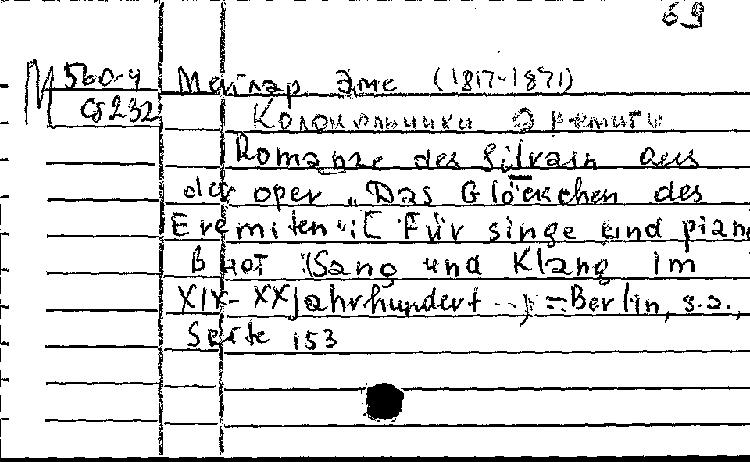 69
М 560-4 Мейлар Эме (1817-1871)
Cg232 Колокольчики Эремиту
Romanze des Silvain aus
der oper „Das Glöckchen des
Eremiten": [Für singe und piano
В нот (Sang und Klang im
XIX-XX jahrhundert...) = Berlin, s.a.,
Seite 153